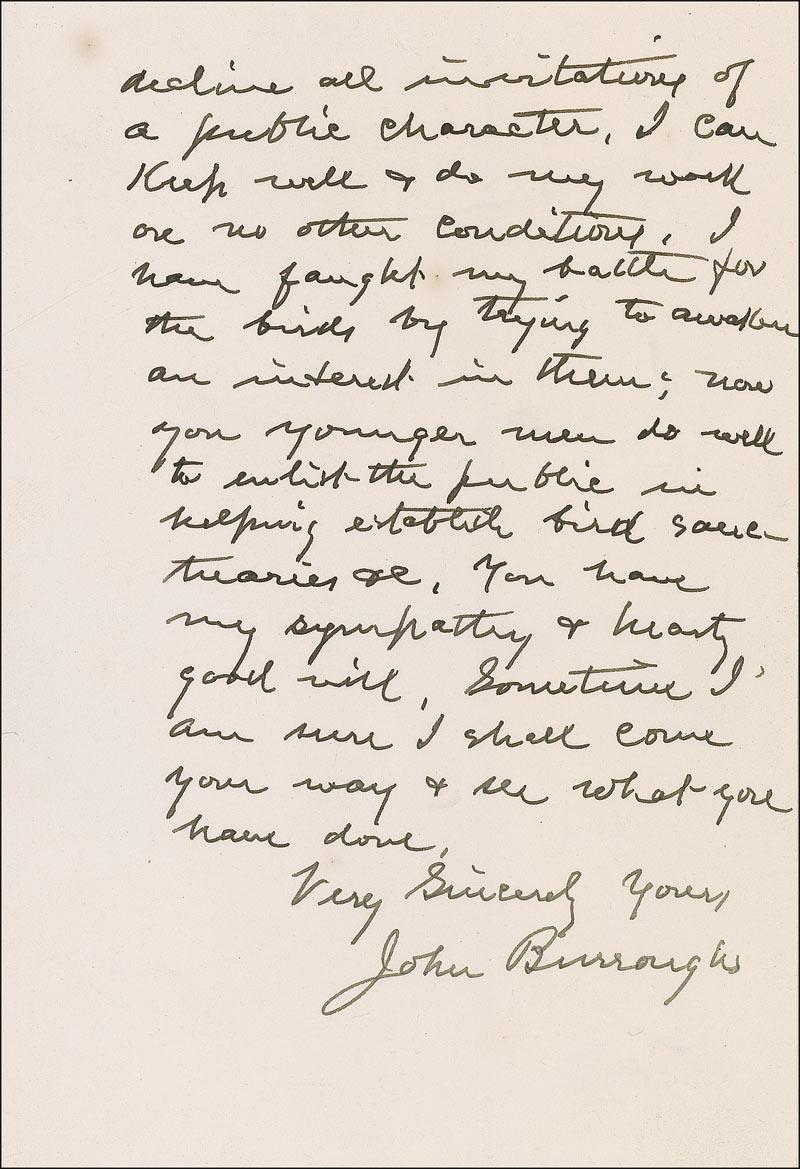 decline all invitations of
a public character. I can
keep well & do my work
on no other conditions. I
have faught my battle for
the birds by trying to awaken
an interest in them; now
you younger men do well
to enlist the public in
helping establish bird sanc-
tuaries &c. You have
my sympathy & hearty
good will. Sometime I
am sure I shall come
your way & see what you
have done.
Very Sincerely Yours
John Burroughs